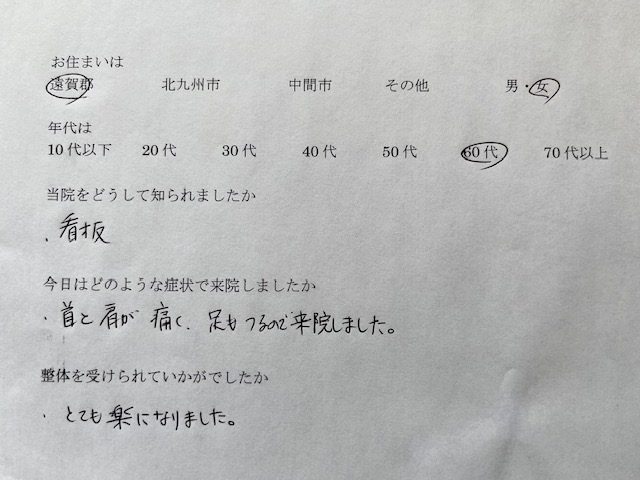 お住まいは
遠賀郡 北九州市 中間市 その他 男・女
年代は
10代以下 20代 30代 40代 50代 60代 70代以上
当院をどうして知られましたか
・看板
今日はどのような症状で来院しましたか
・首と肩が痛く、足もつるので来院しました。
整体を受けられていかがでしたか
・とても楽になりました。